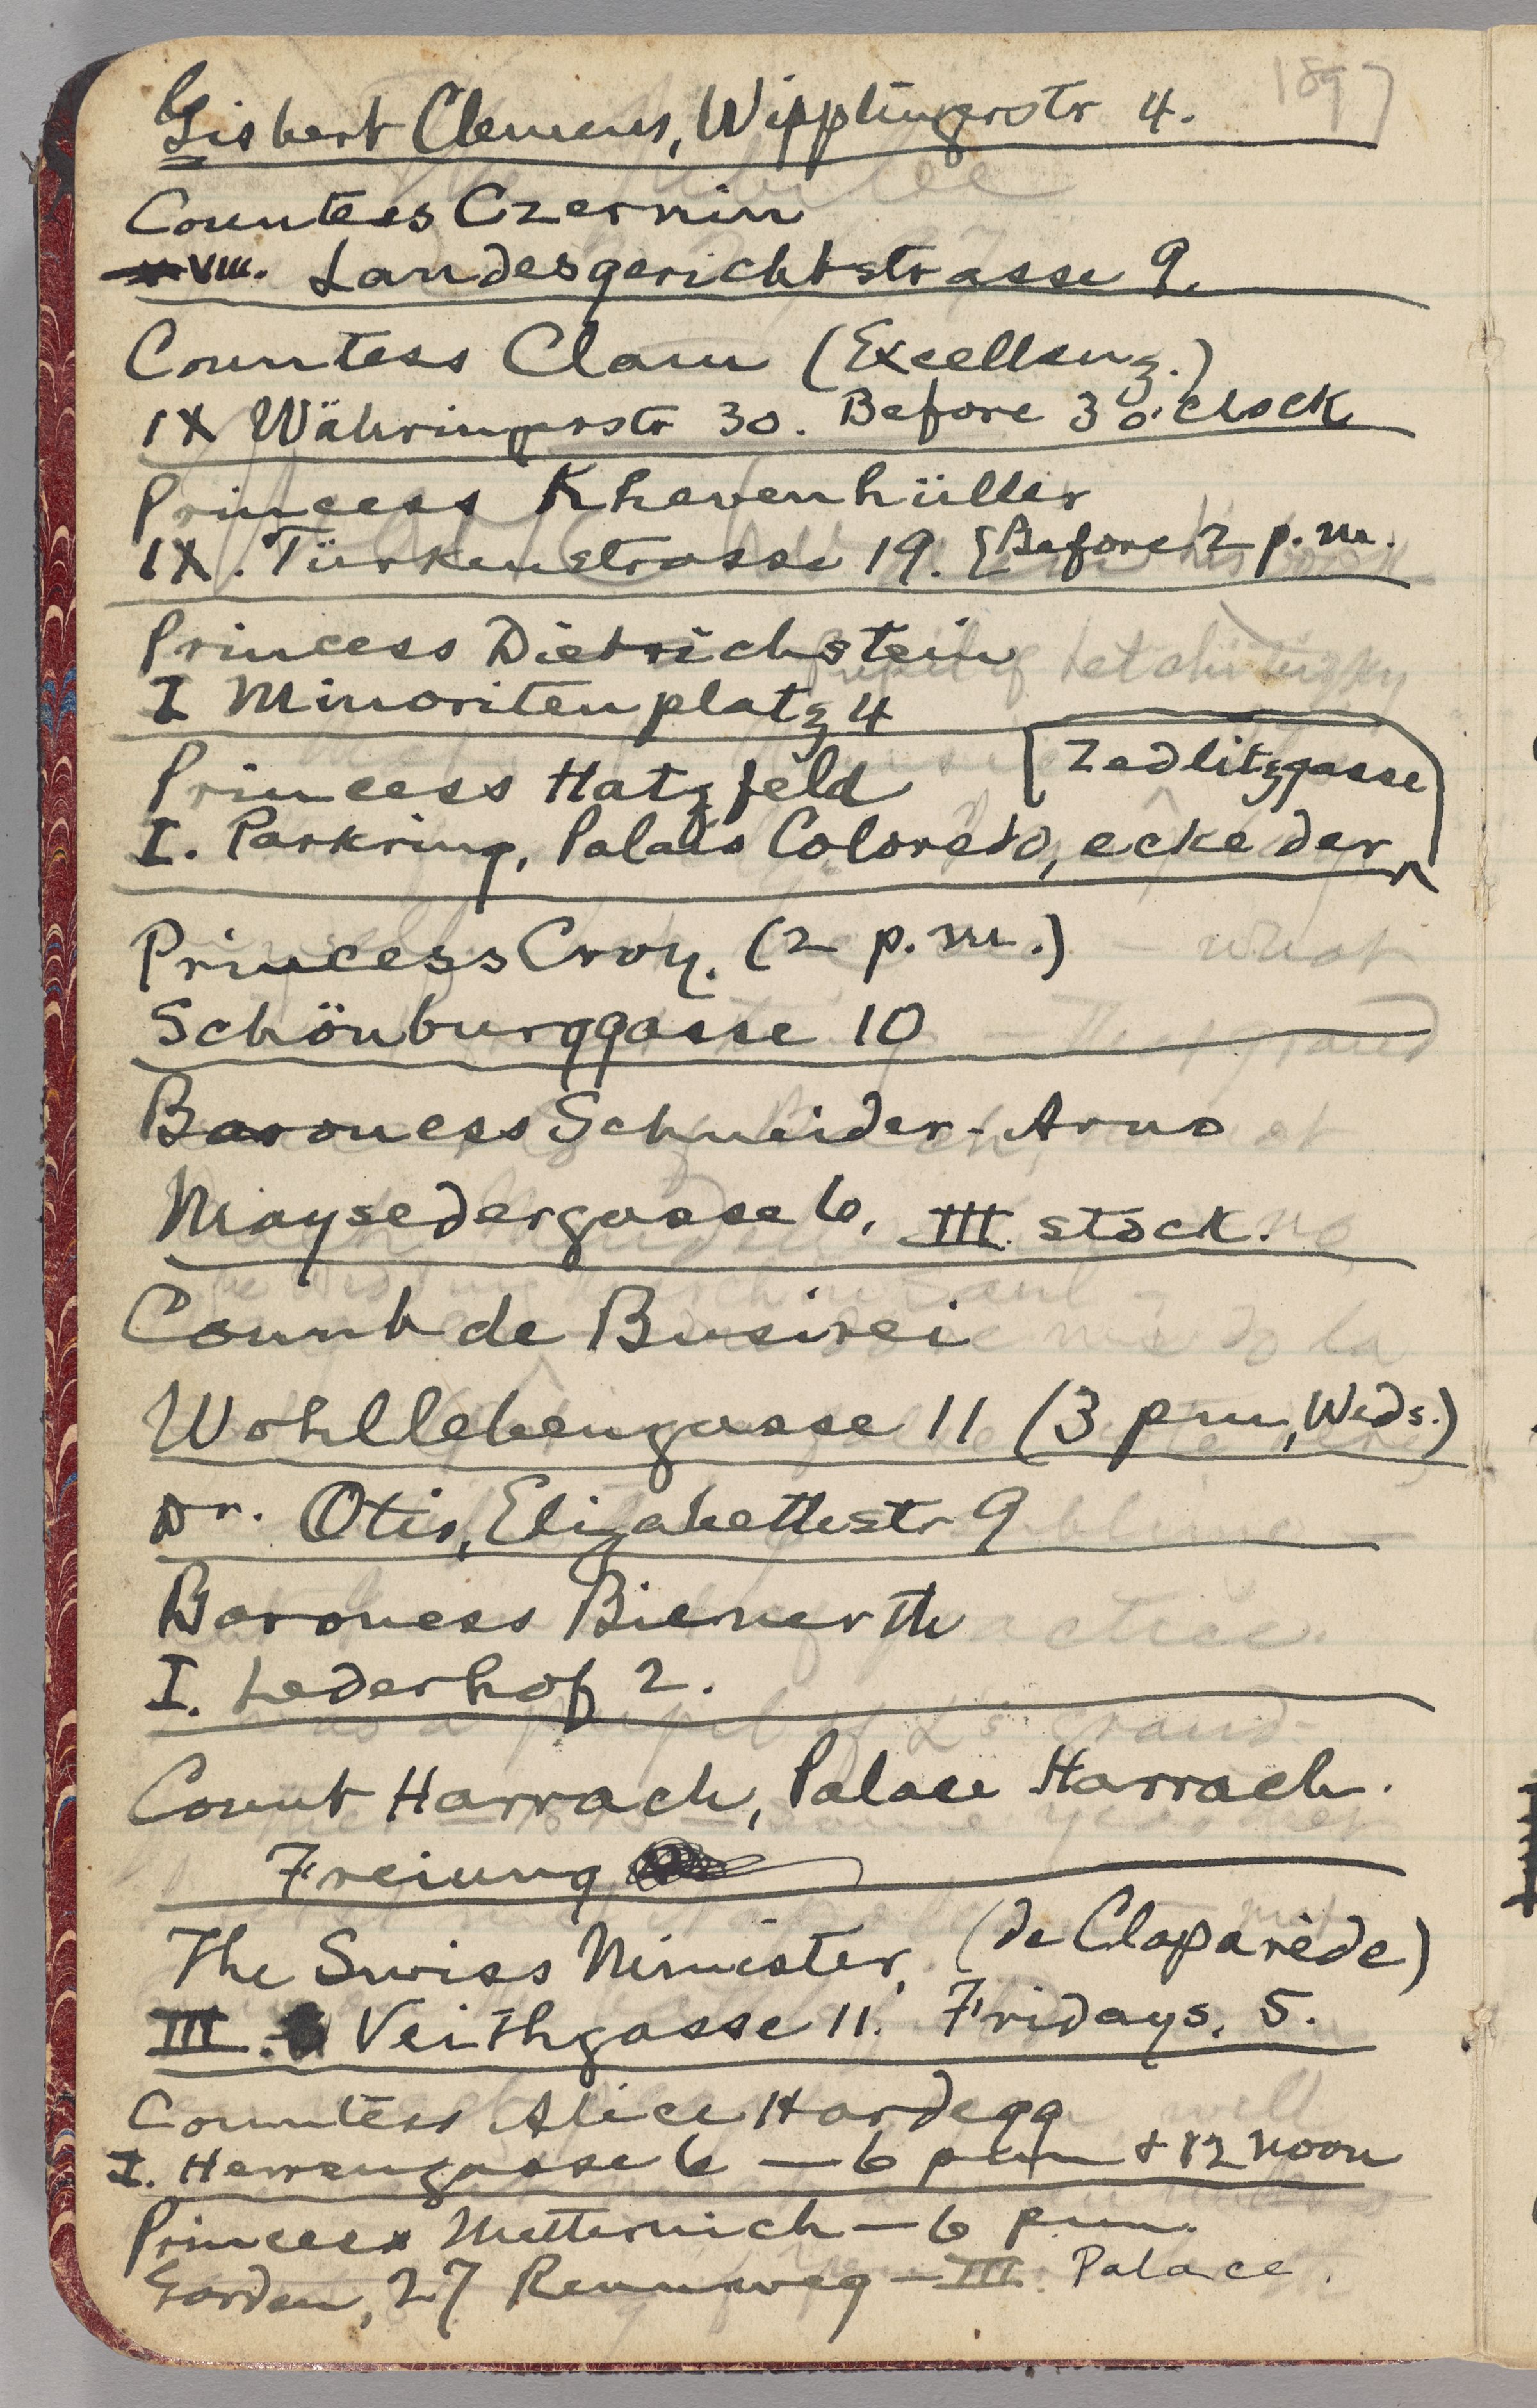 1897
Gisbert Clemens, Wipplingerstr 4.
Countess Czernin
VIII. Landesgerichtstrasse 9.
Countess Clam (Excellenz.)
IX Währingerstr 30. Before 3 o'clock
Princess Khevenhüller
IX. Türkenstrasse 19. [Before 2 p.m.
Princess Dietrichstein
I Minoritenplatz 4
Princess Hatzfeld
Zedlitzgasse
I. Parkring, Palais Coloredo, ecke der
Princess Croy. (2 p.m.)
Schönburggasse 10
Baroness Schneider-Arno
Maysedergasse 6, III stock.
Count de Busirei
Wohllebengasse 11 (3 pm, Weds.)
Dr. Otis, Elizabethstr 9
Baroness Bienerth
I. Lederhof 2.
Count Harrach, Palace Harrach.
Freiung
The Swiss Minister, (de Claparède)
III. Veithgasse 11. Fridays, 5.
Countess Alice Hardegg
I. Herrengasse 6 — 6 pm + 12 noon
Princess Metternich — 6 pm.
Garden, 27 Rennweg — III. Palace.